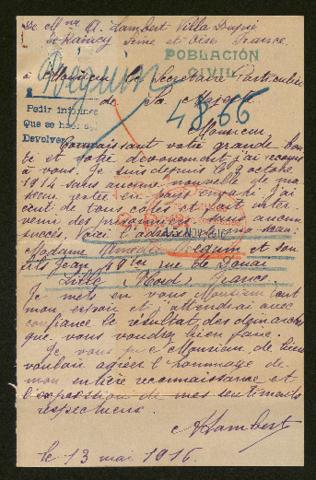 De Mme A. Lambert Villa
Raincy Seine et Oise France
POBLACIÓN
CIVIL
à Monsieur le Secrétaire Particulier
Béguin
de Sa Majesté
4866
Pedir informe
Que se haga
Devolver
Monsieur
Connaissant votre grande bon
té et votre dévouement j'ai recours
à vous. Je suis depuis le octobre
1914 sans aucune nouvelle de ma
soeur restée en pays envahi j'ai
écrit de tous côtés et fait inter
venir des personnes sans aucun
succès. Voici l'adresse de ma soeur:
Madame Béguin et son
fils Jean rue de Douai
Lille (Nord) France
Je mets en vous Monsieur tout
mon espoir et j'attendrai avec
confiance le résultat des démarches
que vous voudrez bien faire.
Je vous prie Monsieur de bien
vouloir agréer l'hommage de
mon entière reconnaissance et
l'expression de mes sentiments
respectueux.
A Lambert
le 13 mai 1916.